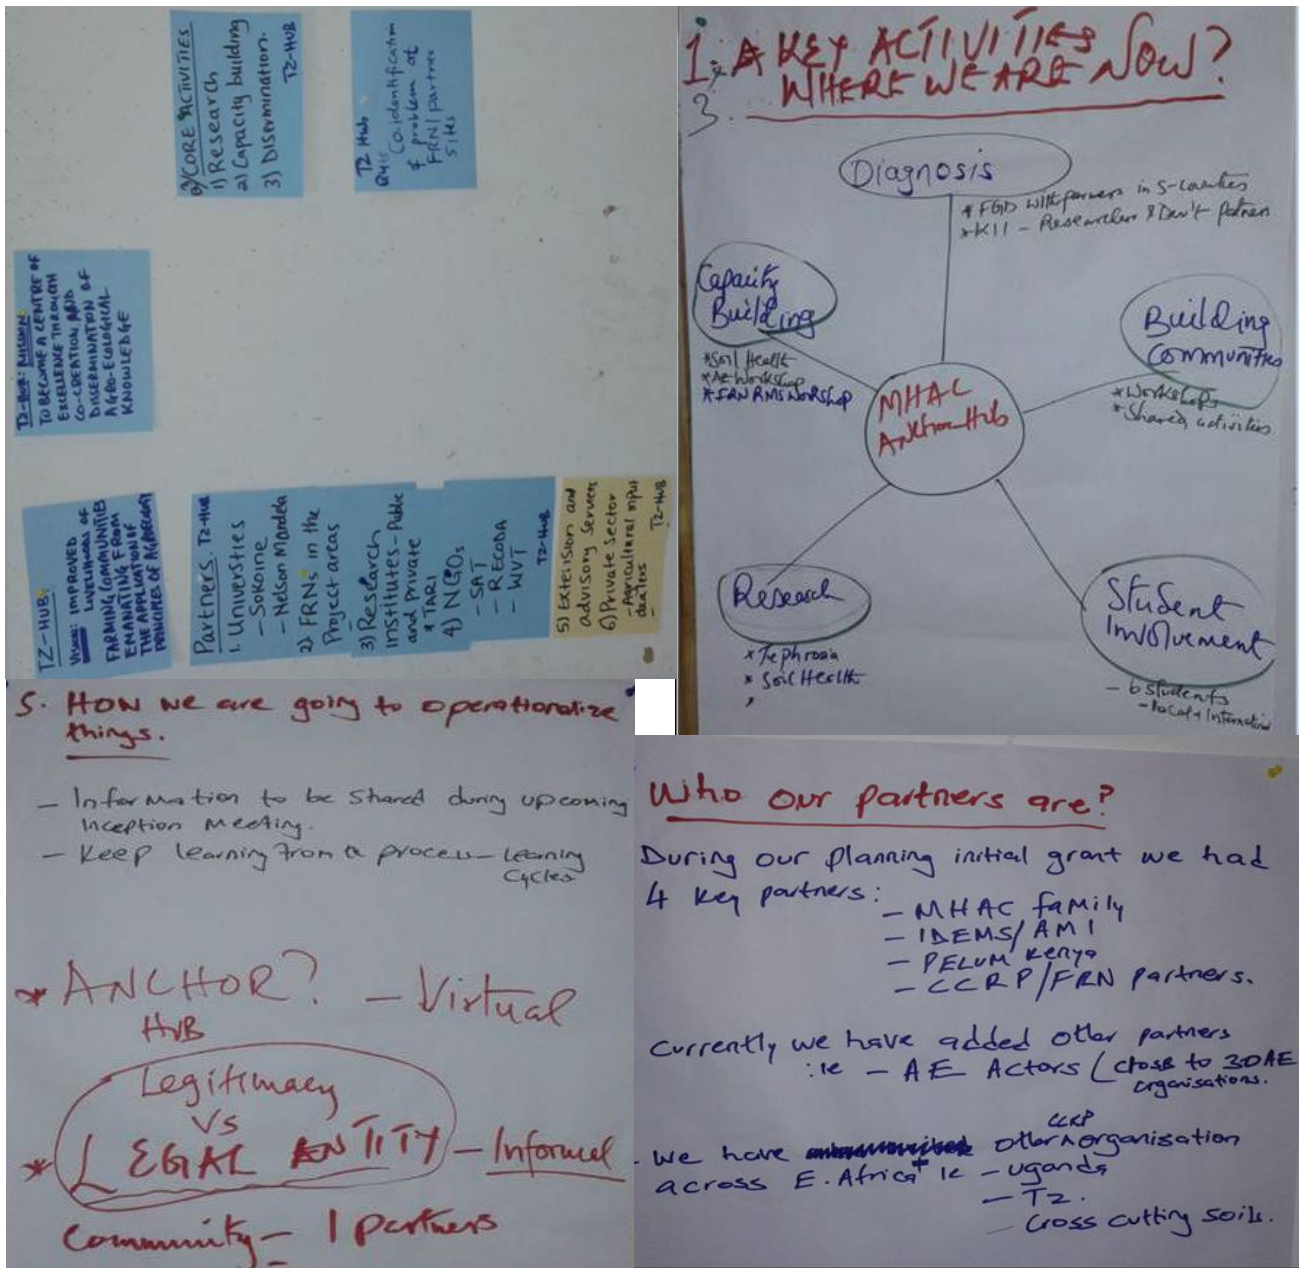 TZ-HUB:
VISION: IMPROVED
LIVELIHOODS OF
FARMING COMMUNITIES
EMANATING FROM
THE APPLICATION OF
PRINCIPLES OF AGROECOLOGY
TZ-HUB: MISSION
TO BECOME A CENTRE OF
EXCELLENCE THROUGH
CO-CREATION AND
DISSERMINATION OF
AGRO-ECOLOGICAL
KNOWLEDGE
CORE ACTIVITIES
1) Research
2) Capacity building
3) Dissermination.
TZ-HUB
TZ Hub
Co.identification
of problem at
FRN/partner
sites
Partners TZ-HUB
1. Universties
- Sokoine
- Nelson Mandela
2) FRNs in the
Project areas
3) Research
Institutes-Public
and private
* TARI
4) NGOs
- SAT
- RECODA
- WVT
TZ-HUB
5) Extension and
advisory services
6) Private sector
- Agricultural input
dealers
-
TZ-HUB
1. A KEY ACTIVITIES
WHERE WE ARE NOW?
3.
Diagnosis
* FGD with farmers in 5-Counties
* KII - Researchers & Dev't Partners
Capacity
Building
* Soil Health
* AE Workshop
* FRN RMS Workshop
Building
Communities
* Workshops
* Shared activities
MHAC
Anchor Hub
Research
* Tephrosia
* Soil Health
Student
Involvement
- 6 students
- local + International
5. How we are going to operationalize
things.
- Information to be shared during upcoming
Inception Meeting.
- Keep learning from a process - Learning
Cycles
* ANCHOR? - Virtual
HUB
Legitimacy
Vs
* LEGAL ENTITY - Informal
Community - 1 partners
Who our partners are?
During our planning initial grant we had
4 key partners:
- MHAC family
- IDEMS/AMI
- PELUM Kenya
- CCRP/FRN partners.
Currently we have added other partners
:ie - AE Actors (close to 30 AE
organisations.
- We have other CCRP organisation
across E. Africa+ ie - Uganda
- TZ.
- Cross cutting soils.